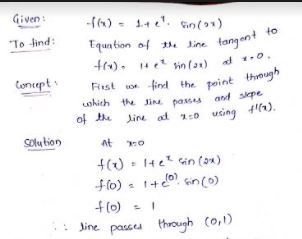 Given: f(x) = 1 + eˣ. Sin(2x)
To find: Equation of the line tangent to
f(x) = 1 + eˣ Sin(2x) at x=0.
Concept: First we find the point through
which the line passes and slope
of the line at x=0 using f'(x).
Solution At x=0
f(x) = 1+eˣ Sin(2x)
f(0) = 1+e⁽⁰⁾. Sin(0)
f(0) = 1
∴ line passes through (0,1)